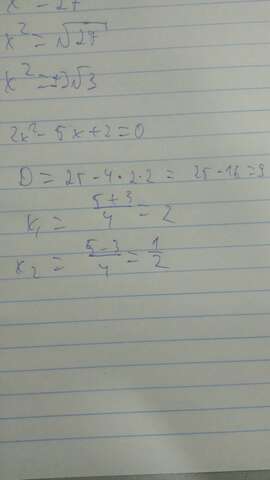 x² = 27
x² = √27
x² = ±3√3
2x² - 5x + 2 = 0
D = 25 - 4 · 2 · 2 = 25 - 16 = 9
x₁ = (5 + 3)/4 = 2
x₂ = (5 - 3)/4 = 1/2